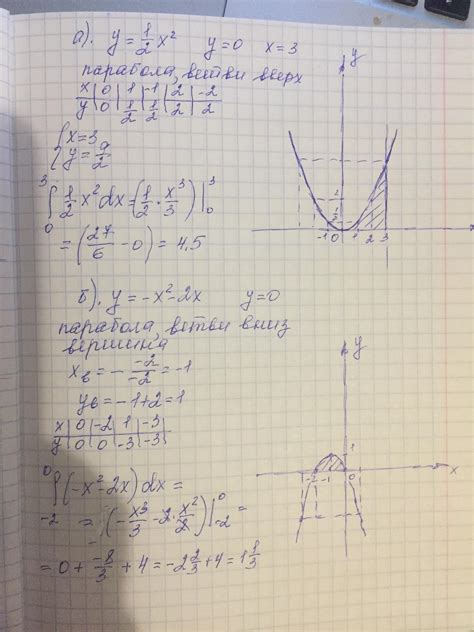 а). y = 1/2 x² y=0 x=3
парабола, ветви вверх
x | 0 | 1 | -1 | 2 | -2
y | 0 | 1/2 | 1/2 | 2 | 2
{ x=3
y= 9/2
∫₀³ 1/2 x² dx = (1/2 · x³/3) |₀³
= (27/6 - 0) = 4,5
y
2
-1 0 1 2 3
б). y = -x² - 2x y=0
парабола, ветви вниз
вершина
xв = - -2/-2 = -1
yв = -1+2 = 1
x | 0 | -2 | 1 | -3
y | 0 | 0 | -3 | -3
∫₋₂⁰ (-x² - 2x) dx =
= (-x³/3 - 2·x²/2) |₋₂⁰ =
= 0 + -8/3 + 4 = -2 2/3 + 4 = 1 1/3
y
1
-2 -1 0 x